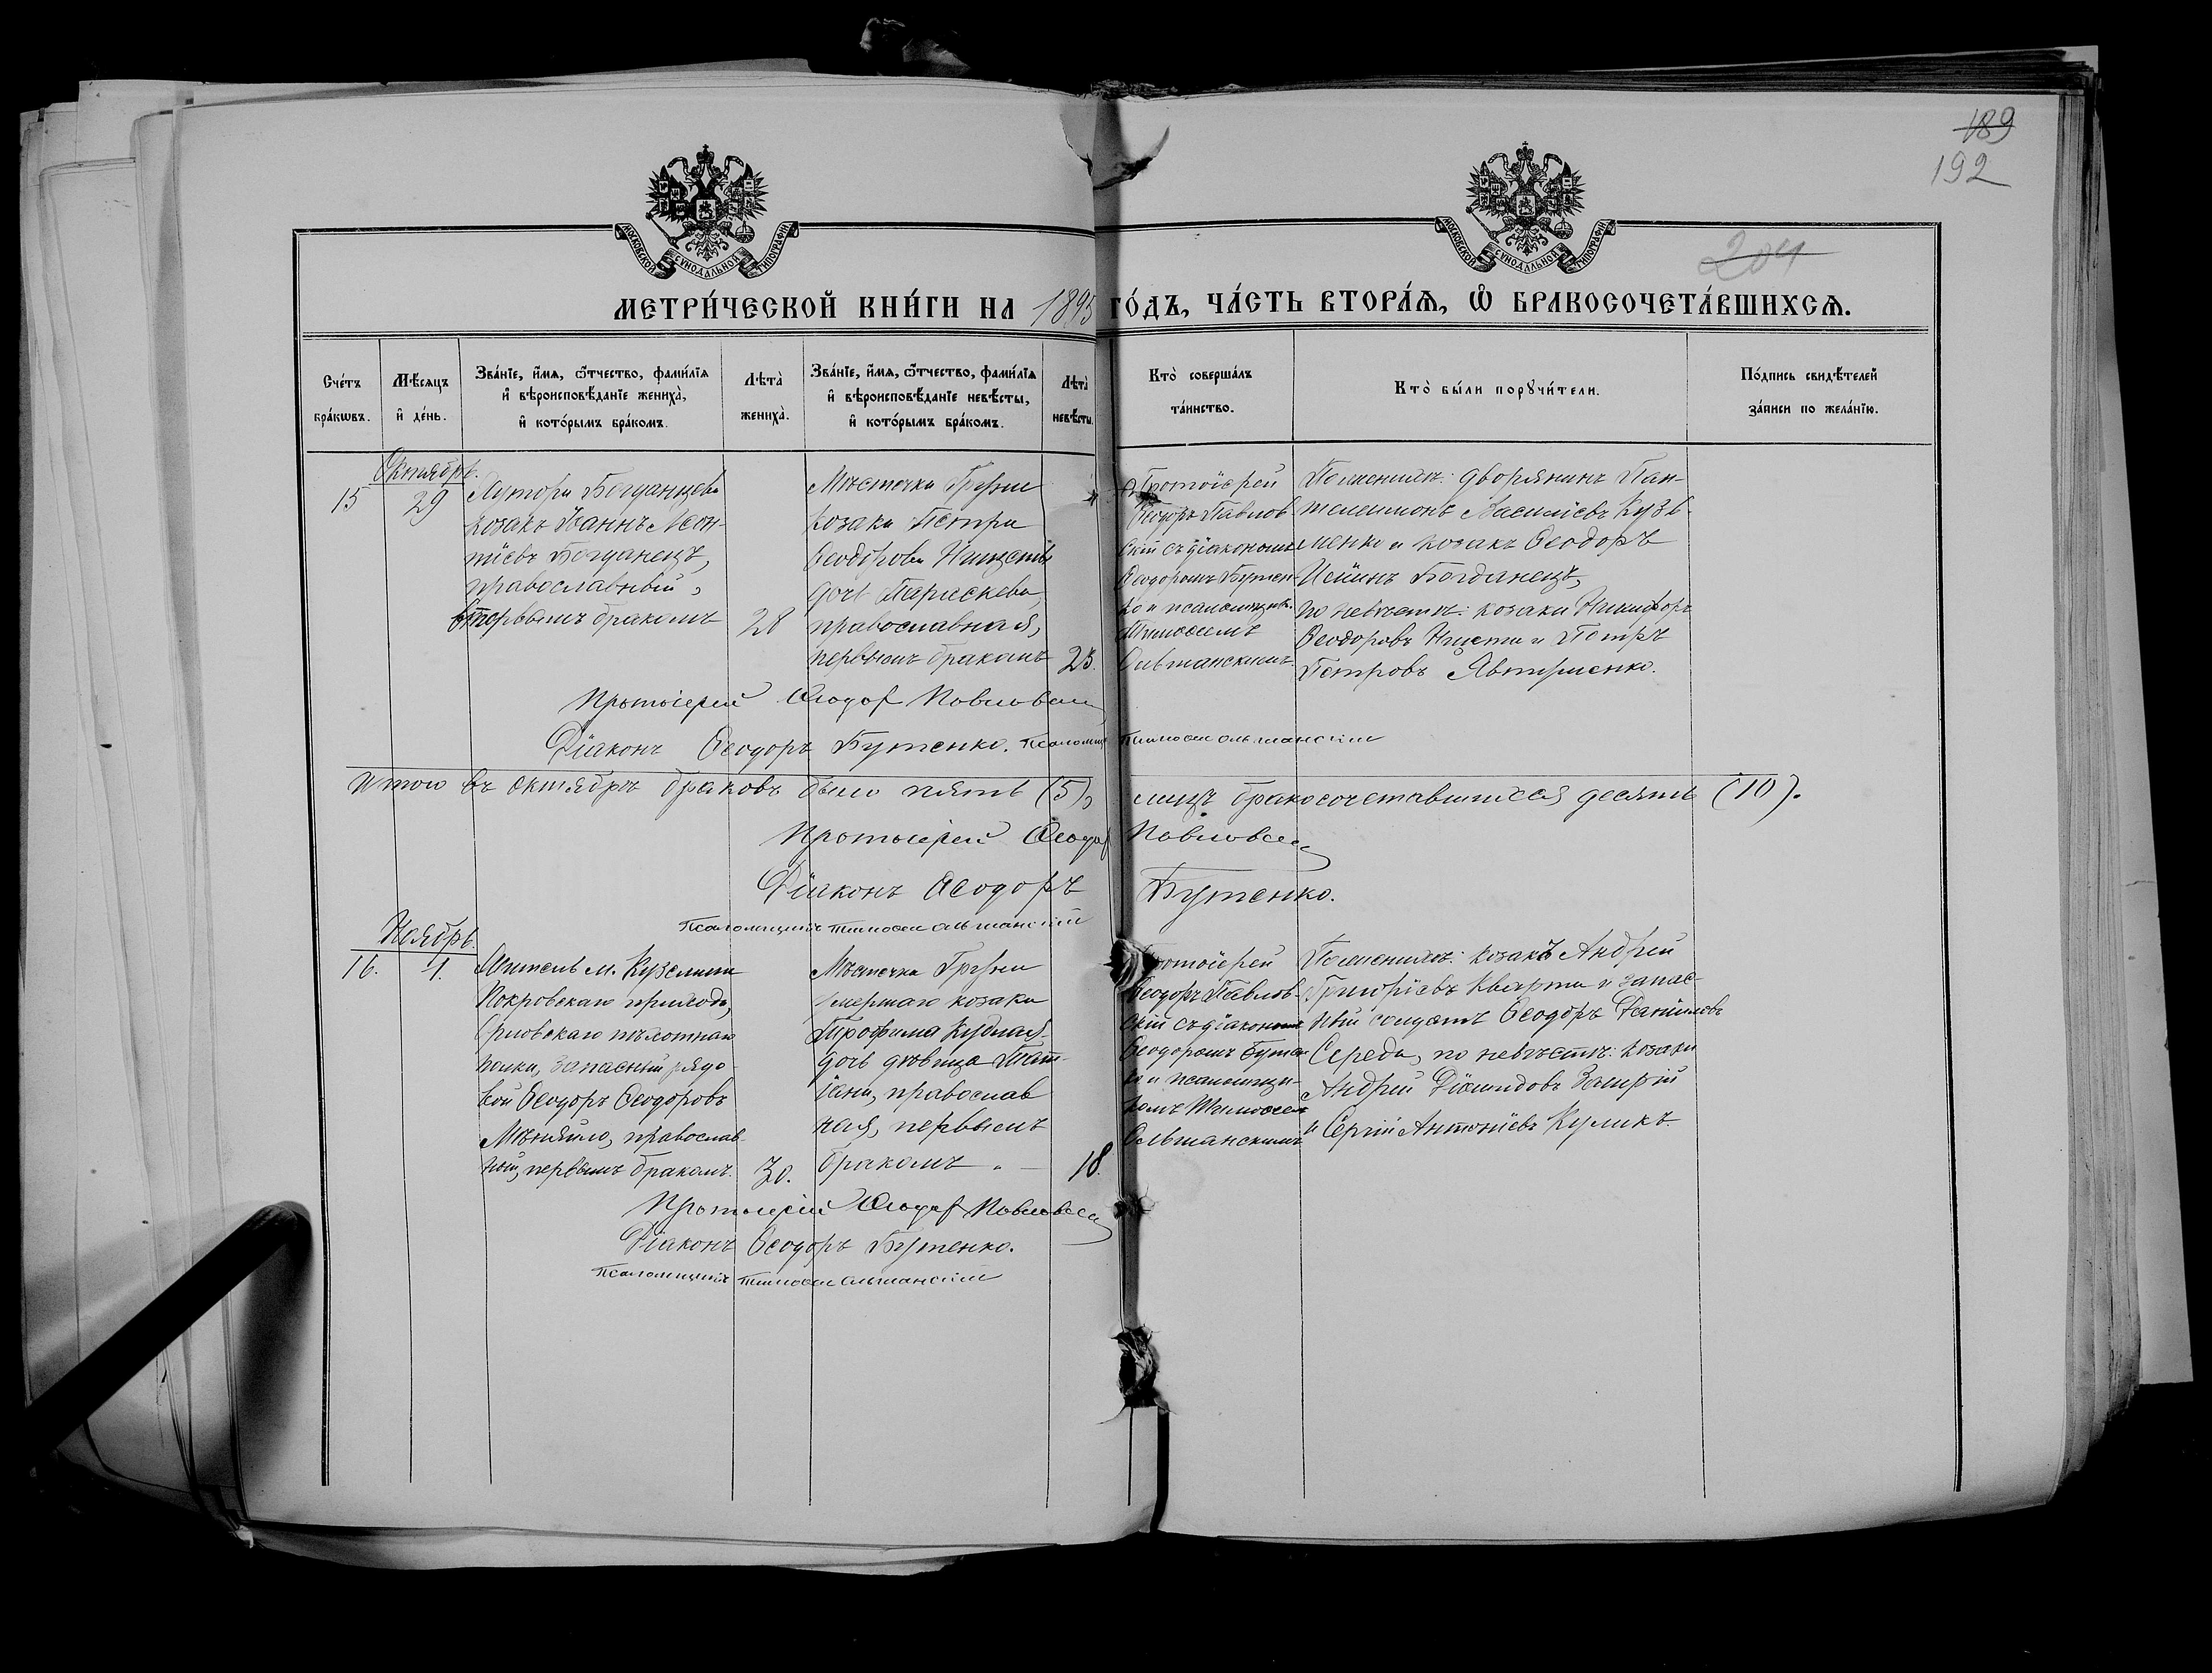 189
192
204
МОСКОВСКОЙ СУНОДАЛЬНОЙ ТИПОГРАФІИ
МОСКОВСКОЙ СУНОДАЛЬНОЙ ТИПОГРАФІИ
МЕТРИ́ЧЕСКОЙ КНИ́ГИ НА 1895 ГО́ДЪ, ЧА́СТЬ ВТОРА́Я, Ѡ҆ БРАКОСОЧЕТА́ВШИХСЯ.
Сче́тъ бра́кѡвъ.
Мѣ́сяцъ и҆ де́нь.
Зва́нїе, и҆́мя, ѻ҆́тчество, фами́лїя и҆ вѣроисповѣ́данїе жениха̀, и҆ кото́рымъ бра́комъ.
Лѣта̀ жениха̀.
Зва́нїе, и҆́мя, ѻ҆́тчество, фами́лїя и҆ вѣроисповѣ́данїе невѣ́сты, и҆ кото́рымъ бра́комъ.
Лѣта̀ невѣ́сты.
Кто̀ соверша́лъ та́инство.
Кто̀ бы́ли порꙋчи́тели.
По́дпись свидѣ́телей за́писи по жела́нїю.
Октябрь.
15
29
Хутора Богданцева
козакъ Іоаннъ Леон-
тіевъ Богданецъ,
православный,
первымъ бракомъ
28
Мѣстечка Груни
козака Петра
Ѳеодорова
дочь Параскева,
православная,
первымъ бракомъ
23.
Протоіерей
Ѳеодоръ Павлов-
скій съ діакономъ
Ѳеодоромъ Бутен-
ко и псаломщик.
Тимоѳеемъ
Ольшанскимъ.
По женихѣ: дворянинъ Пан-
телеимонъ Василіевъ Кузь-
менко и козакъ Ѳеодоръ
Богданецъ,
по невѣстѣ: козаки Никифоръ
Ѳеодоровъ и Петръ
Петровъ
Протоіерей Ѳеодоръ Павловскій
Діаконъ Ѳеодоръ Бутенко. Псаломщ. Тимоѳей Ольшанскій
Итого въ октябрѣ браковъ было пять (5), лицъ бракосочетавшихся десять (10).
Протоіерей Ѳеодоръ Павловскій
Діаконъ Ѳеодоръ Бутенко.
Псаломщикъ Тимоѳей Ольшанскій
Ноябрь.
16.
1.
Житель м. Куземина
Покровскаго прихода,
Орловскаго пѣхотнаго
полка, запасный рядо-
вой Ѳеодоръ Ѳеодоровъ
Мѣняйло, православ-
ный, первымъ бракомъ.
30.
Мѣстечка Груни
умершаго козака
Трофима Кудлая
дочь дѣвица Тат-
іана, православ
ная, первымъ
бракомъ
18.
Протоіерей
Ѳеодоръ Павлов-
скій съ діакономъ
Ѳеодоромъ Бутен
ко и псаломщи-
комъ Тимоѳеем
Ольшанскимъ
По женихѣ: козакъ Андрей
Григоріевъ Кварта и запас-
ный солдатъ Ѳеодоръ Даніиловъ
Середа, по невѣстѣ: козаки
Андрей Діомидовъ
и Сергій Антоніевъ Куликъ.
Протоіерей Ѳеодоръ Павловскій
Діаконъ Ѳеодоръ Бутенко.
Псаломщикъ Тимоѳей Ольшанскій